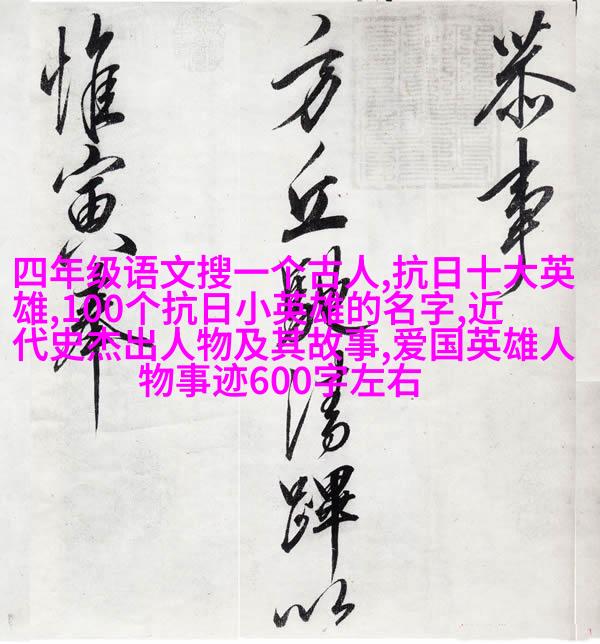 恭事
方丘清蹕以
惟寅奉
四年级语文搜一个古人,抗日十大英
雄,100个抗日小英雄的名字,近
代史杰出人物及其故事,爱国英雄人
物事迹600字左右